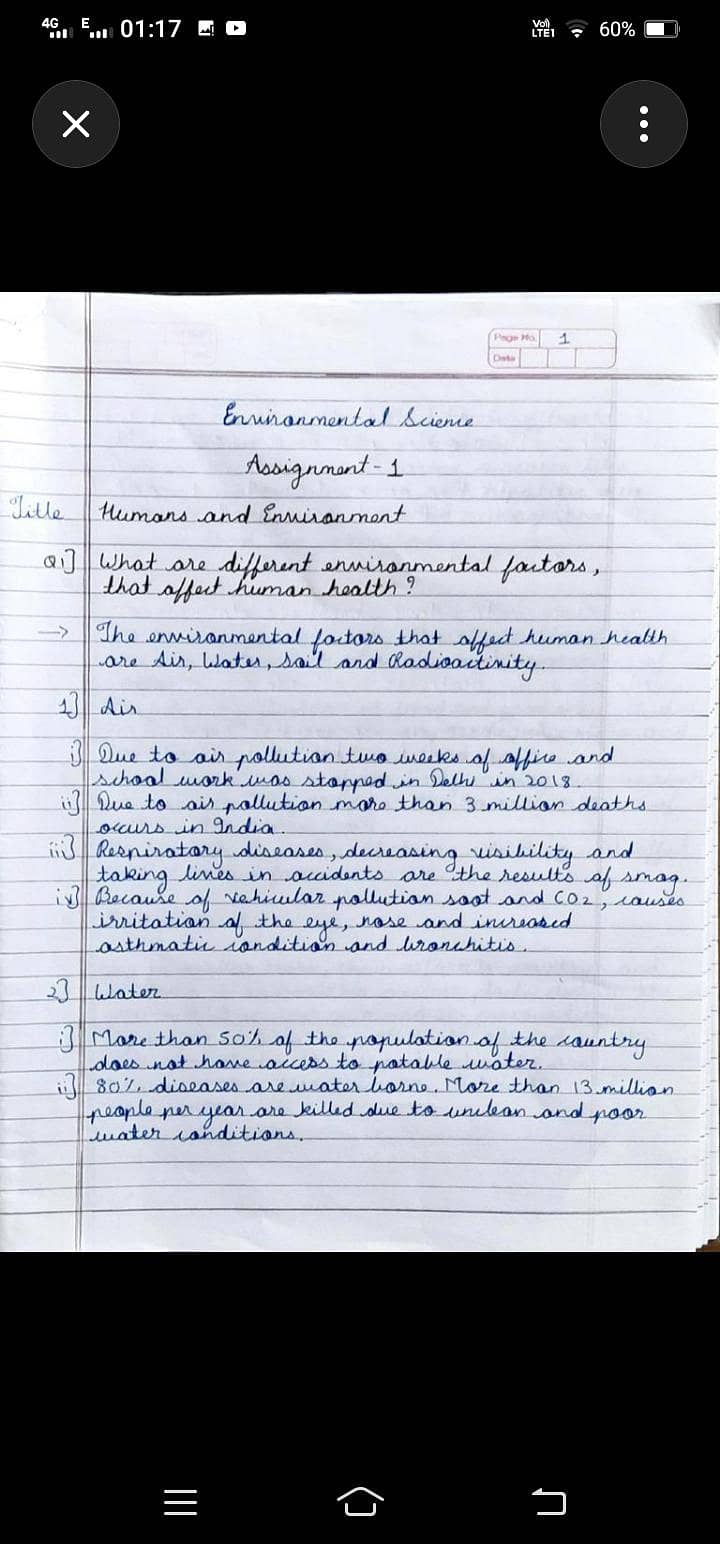 4G E 01:17 Vo)) LTE1 60%
Page No. 1
Date
Environmental Science
Assignment - 1
Title Humans and Environment
Q1] What are different environmental factors,
that affect human health?
→ The environmental factors that affect human health
are Air, Water, Soil and Radioactivity.
1] Air
i] Due to air pollution two weeks of office and
school work was stopped in Delhi in 2018.
ii] Due to air pollution more than 3 million deaths
occurs in India.
iii] Respiratory diseases, decreasing visibility and
taking lives in accidents are the results of smog.
iv] Because of vehicular pollution soot and CO2, causes
irritation of the eye, nose and increased
asthmatic condition and bronchitis.
2] Water
i] More than 50% of the population of the country
does not have access to potable water.
ii] 80% diseases are water borne. More than 13 million
people per year are killed due to unclean and poor
water conditions.